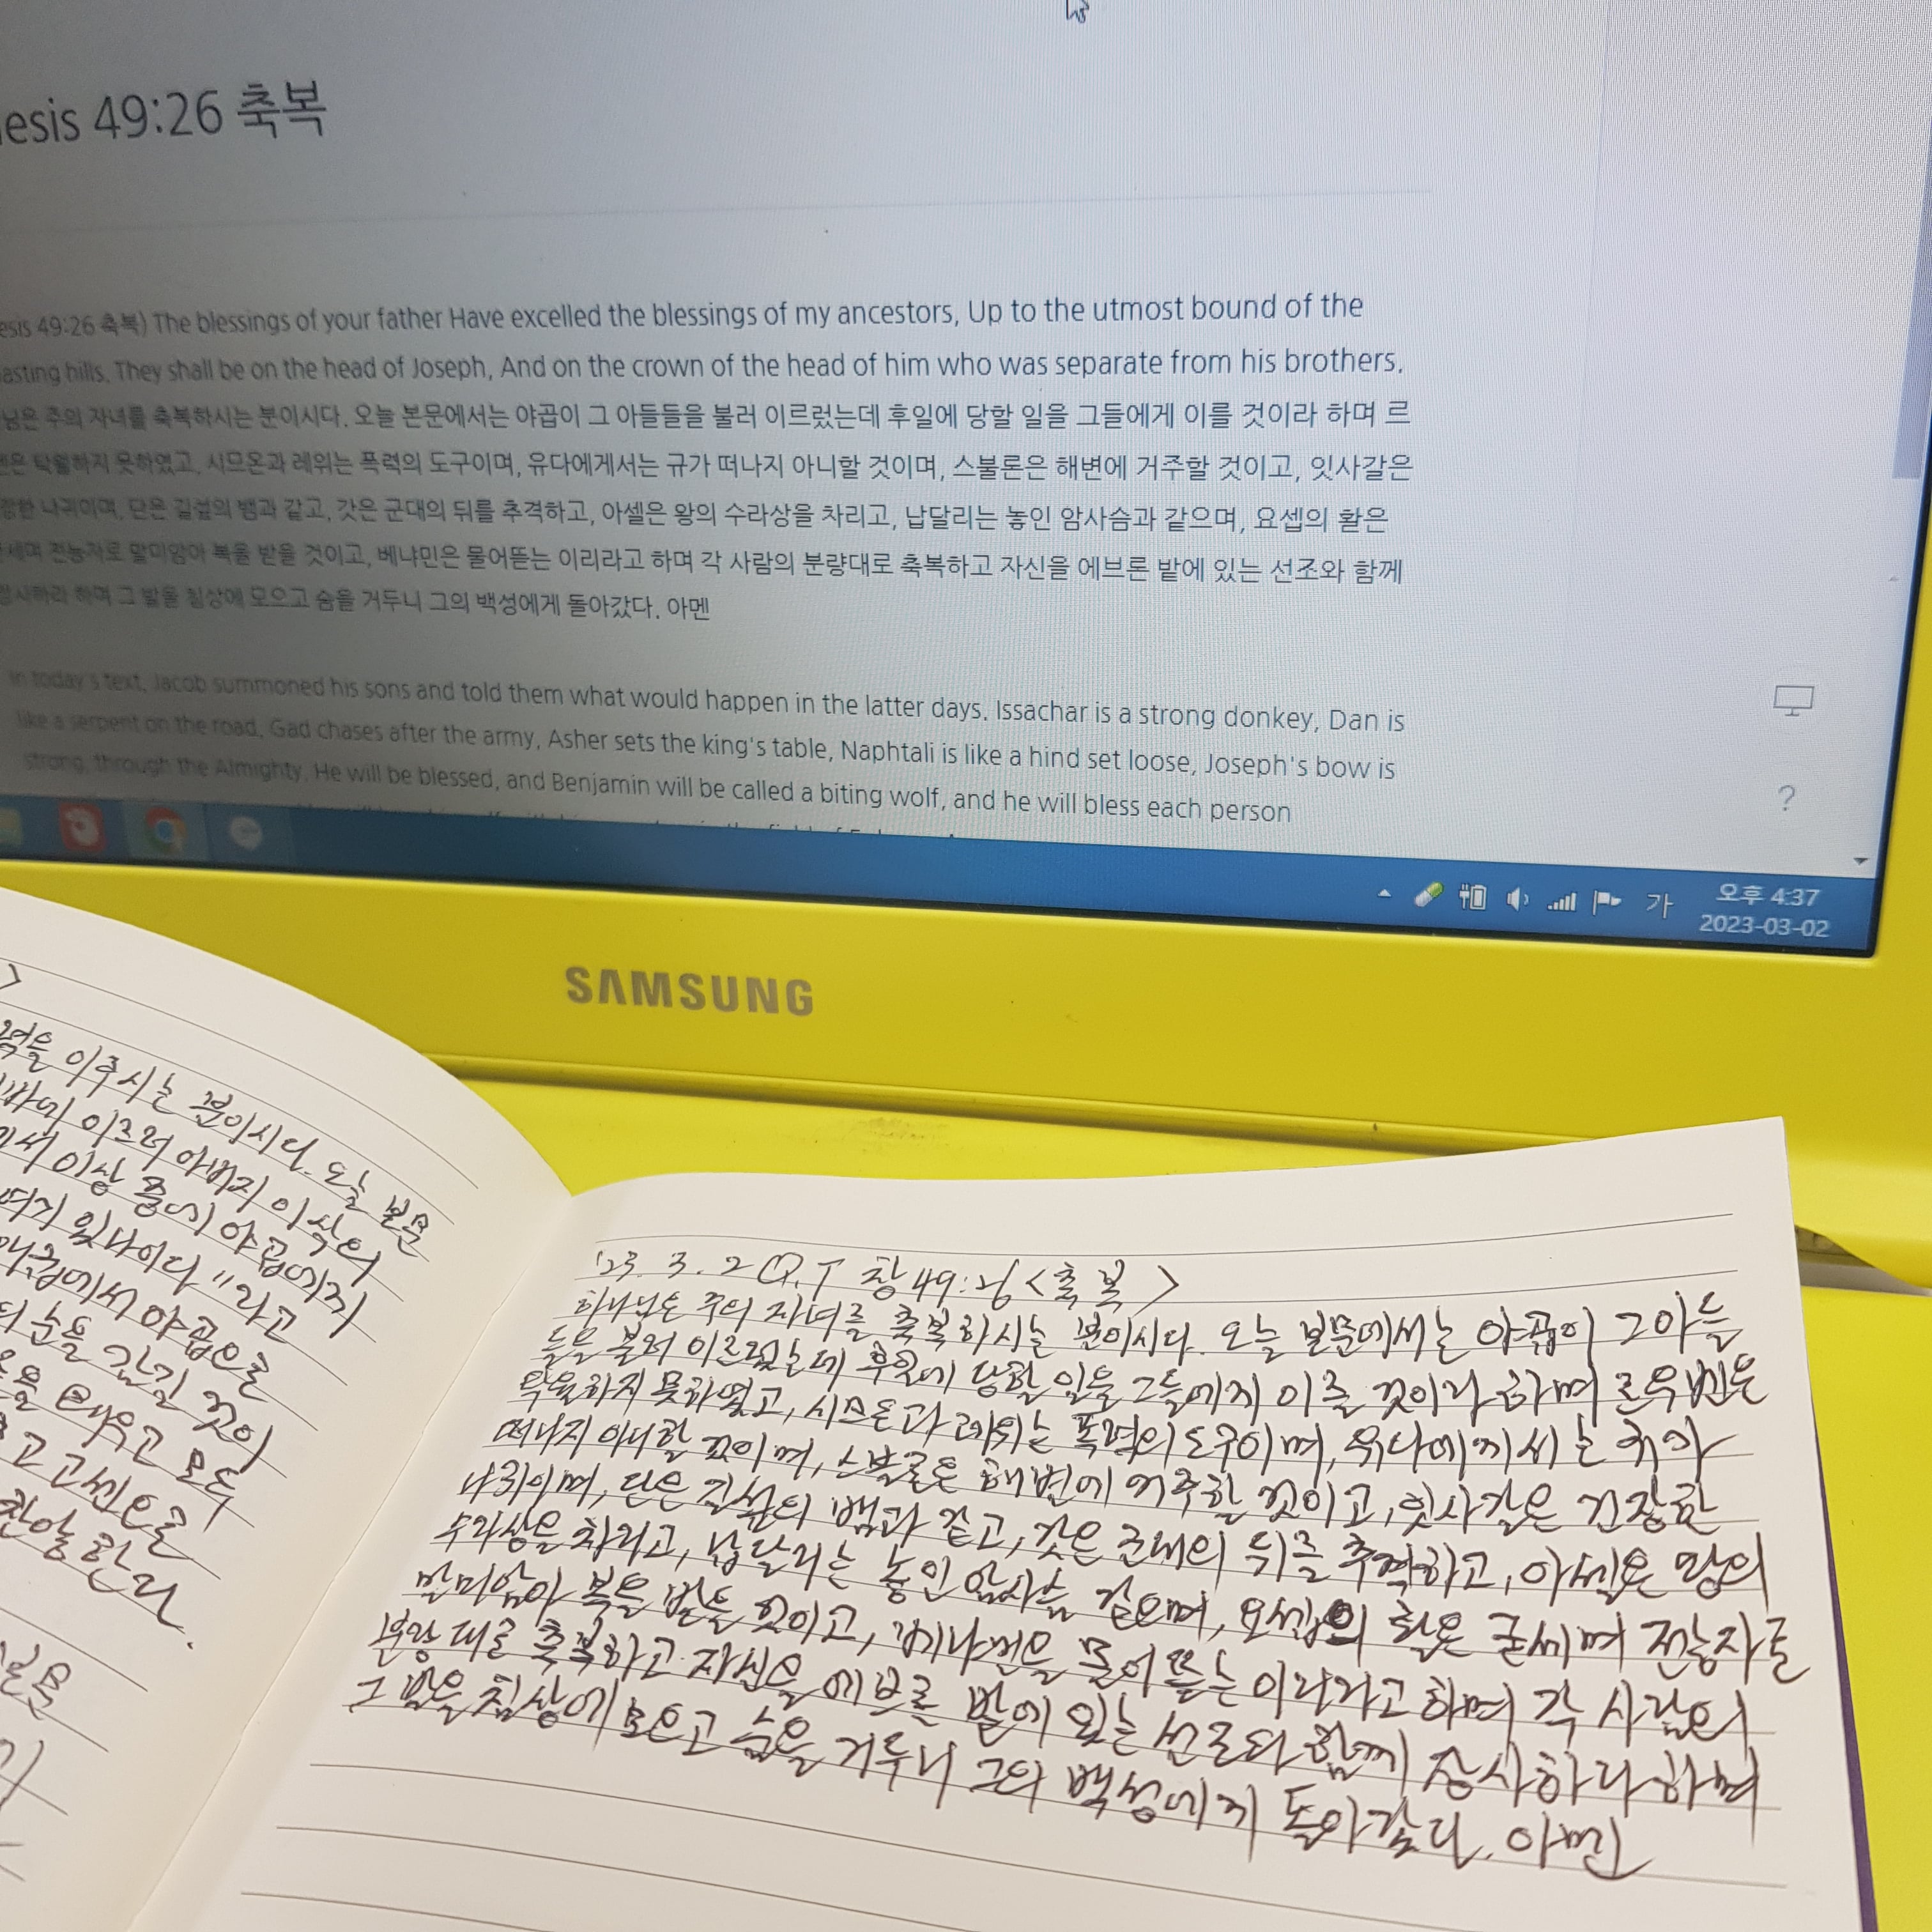 esis 49:26 축복
esis 49:26 축복) The blessings of your father Have excelled the blessings of my ancestors, Up to the utmost bound of the
asting hills. They shall be on the head of Joseph, And on the crown of the head of him who was separate from his brothers.
님은 주의 자녀를 축복하시는 분이시다. 오늘 본문에서는 야곱이 그 아들들을 불러 이르렀는데 후일에 당할 일을 그들에게 이를 것이라 하며 르
은 탁월하지 못하였고, 시므온과 레위는 폭력의 도구이며, 유다에게서는 규가 떠나지 아니할 것이며, 스불론은 해변에 거주할 것이고, 잇사갈은
장한 나귀이며, 단은 길섶의 뱀과 같고, 갓은 군대의 뒤를 추격하고, 아셀은 왕의 수라상을 차리고, 납달리는 놓인 암사슴과 같으며, 요셉의 활은
세며 전능자로 말미암아 복을 받을 것이고, 베냐민은 물어뜯는 이리라고 하며 각 사람의 분량대로 축복하고 자신을 에브론 밭에 있는 선조와 함께
장사하라 하며 그 발을 침상에 모으고 숨을 거두니 그의 백성에게 돌아갔다. 아멘
In today's text, Jacob summoned his sons and told them what would happen in the latter days. Issachar is a strong donkey, Dan is
like a serpent on the road, Gad chases after the army, Asher sets the king's table, Naphtali is like a hind set loose, Joseph's bow is
strong, through the Almighty. He will be blessed, and Benjamin will be called a biting wolf, and he will bless each person
?
가 오후 4:37
2023-03-02
SAMSUNG
이루시는 분이시다. 오늘 본문
이르러 아버지 이삭의
이상 중에 야곱에게
여기 있나이다" 라고
에서 야곱으로
손을 감길 것이
태우고 모두
고 고센으로
란다.
본문
'23. 3. 2 Q.T 창49:26 <축복>
하나님은 주의 자녀를 축복하시는 분이시다. 오늘 본문에서는 야곱이 그 아들
들을 불러 이르렀는데 후일에 당할 일을 그들에게 이를 것이라 하며 르우벤은
탁월하지 못하였고, 시므온과 레위는 폭력의 도구이며, 유다에게서는 규가
떠나지 아니할 것이며, 스불론은 해변에 거주할 것이고, 잇사갈은 건장한
나귀이며, 단은 길섶의 뱀과 같고, 갓은 군대의 뒤를 추격하고, 아셀은 왕의
수라상을 차리고, 납달리는 놓인 암사슴 같으며, 요셉의 활은 굳세며 전능자로
말미암아 복을 받을 것이고, 베냐민은 물어뜯는 이리라고 하며 각 사람의
분량대로 축복하고 자신을 에브론 밭에 있는 선조와 함께 장사하라 하며
그 발을 침상에 모으고 숨을 거두니 그의 백성에게 돌아갔다. 아멘